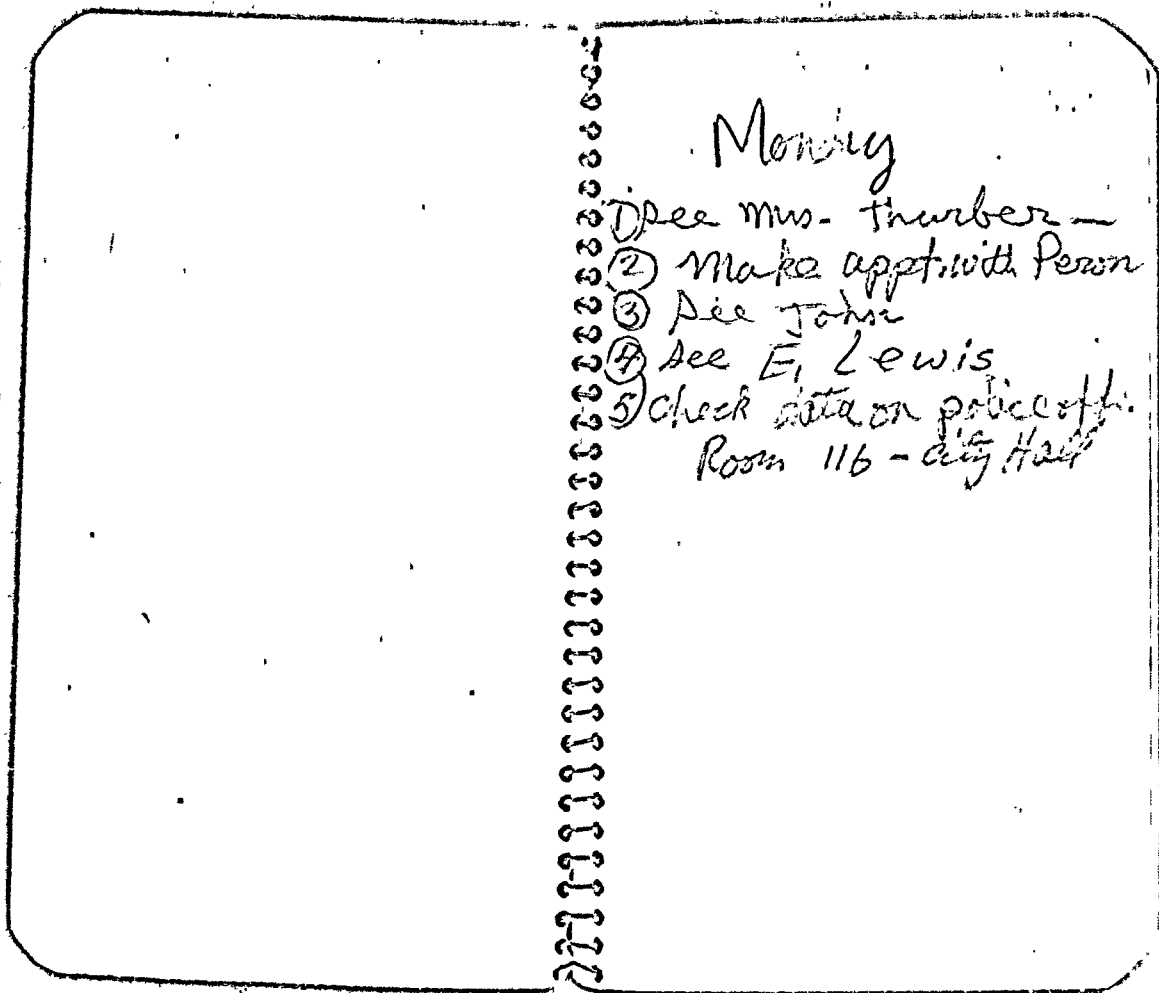 Monday
1) See Mrs. Thurber —
② Make appt. with Peron
③ See John
④ See E. Lewis
5) Check data on police off.
Room 116 - City Hall